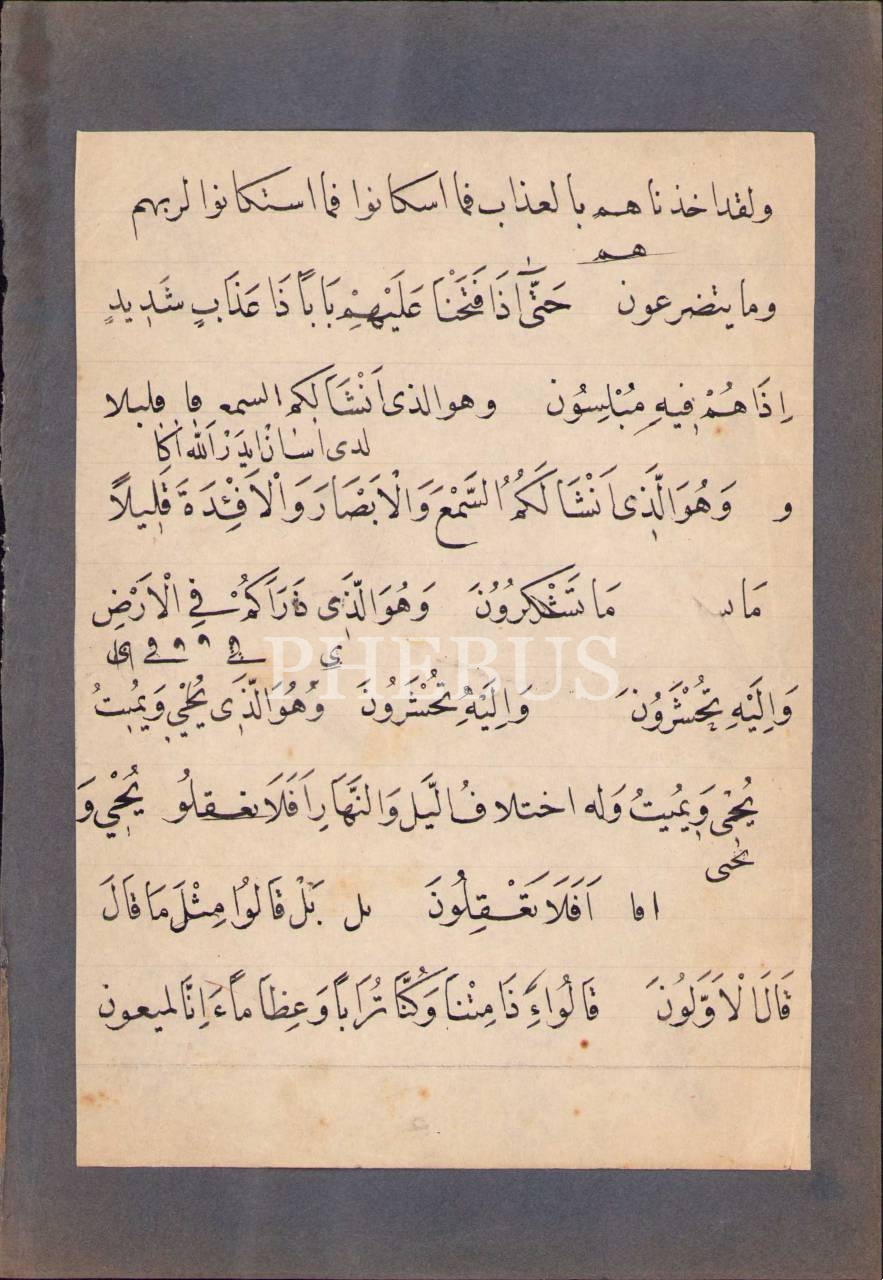 ولقد اخذناهم بالعذاب فما اسكانوا فما استكانوا لربهم
هم
وما يتضرعون حَتَّى اِذَا فَتَحْنَا عَلَيْهِمْ بَاباً ذَا عَذَابٍ شَدِيدٍ
اِذَا هُمْ فِيهِ مُبْلِسُون وهو الذى اَنْشَا لكم السمع قليلا
و وَهُوَ الَّذِى اَنْشَا لَكُمُ السَّمْعَ وَالْاَبْصَارَ وَالْاَفْئِدَةَ قَلِيلاً
مَا مَا تَشْكُرُونَ وَهُوَ الَّذِى ذَرَاَكُمْ فِي الْاَرْضِ
PHEBUS
وَاِلَيْهِ تُحْشَرُونَ وَاِلَيْهِ تُحْشَرُونَ وَهُوَ الَّذِى يُحْيِي وَيُمِيتُ
يُحْيِى وَيُمِيتُ وَله اختلافُ الَّيْلِ وَالنَّهَارِ اَفَلَا تعقلو يُحْيِي وَ
يحيى
افا اَفَلَا تَعْقِلُونَ بل بَلْ قَالُوا مِثْلَ مَا قَالَ
قَالَ الْاَوَّلُونَ قَالُوا ءَاِذَا مِتْنَا وَكُنَّا تُرَاباً وَعِظَاماً ءَاِنَّا لمبعون